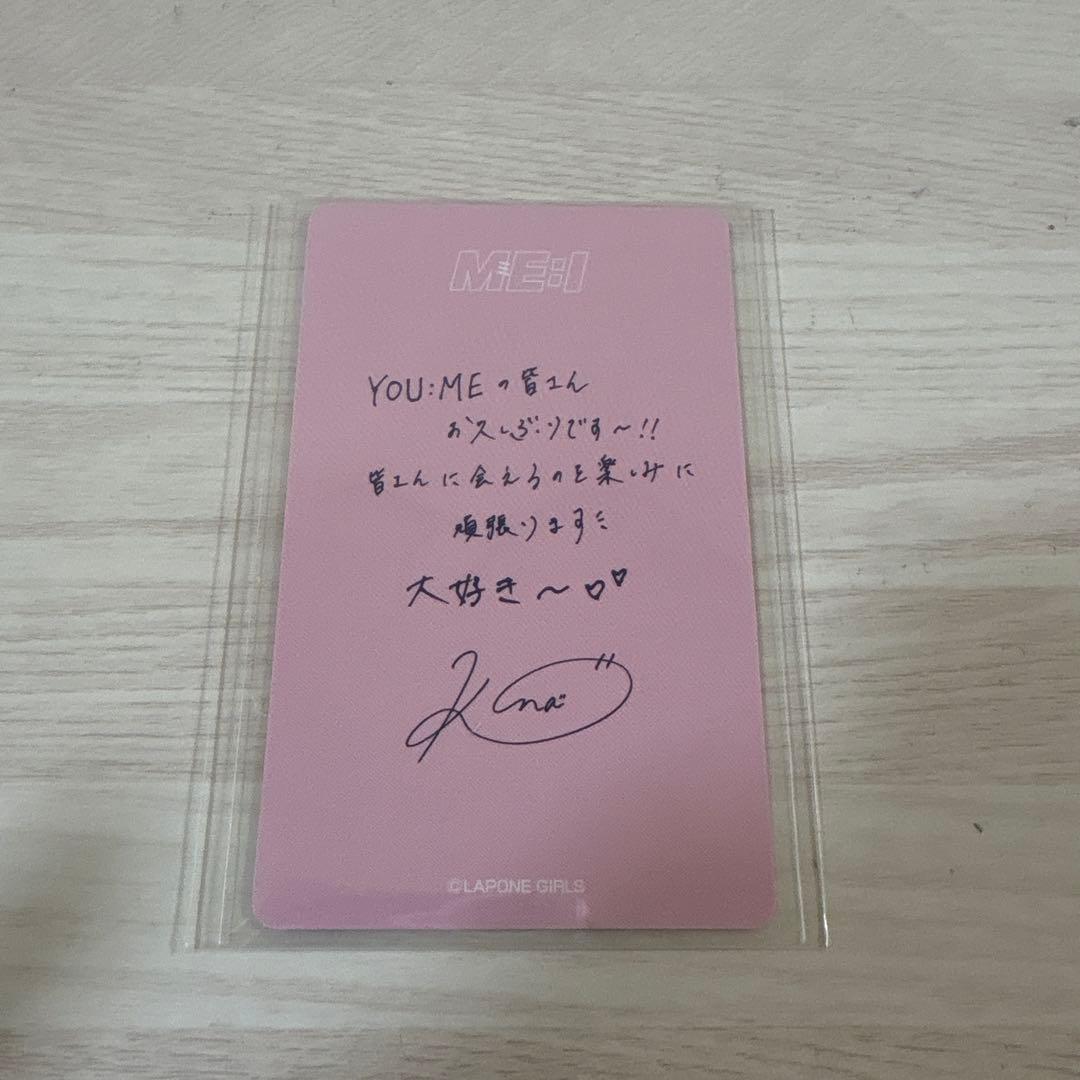 ME:I
YOU:MEの皆さん
お久しぶりです〜!!
皆さんに会えるのを楽しみに
頑張ります
大好き〜♡♡
©LAPONE GIRLS